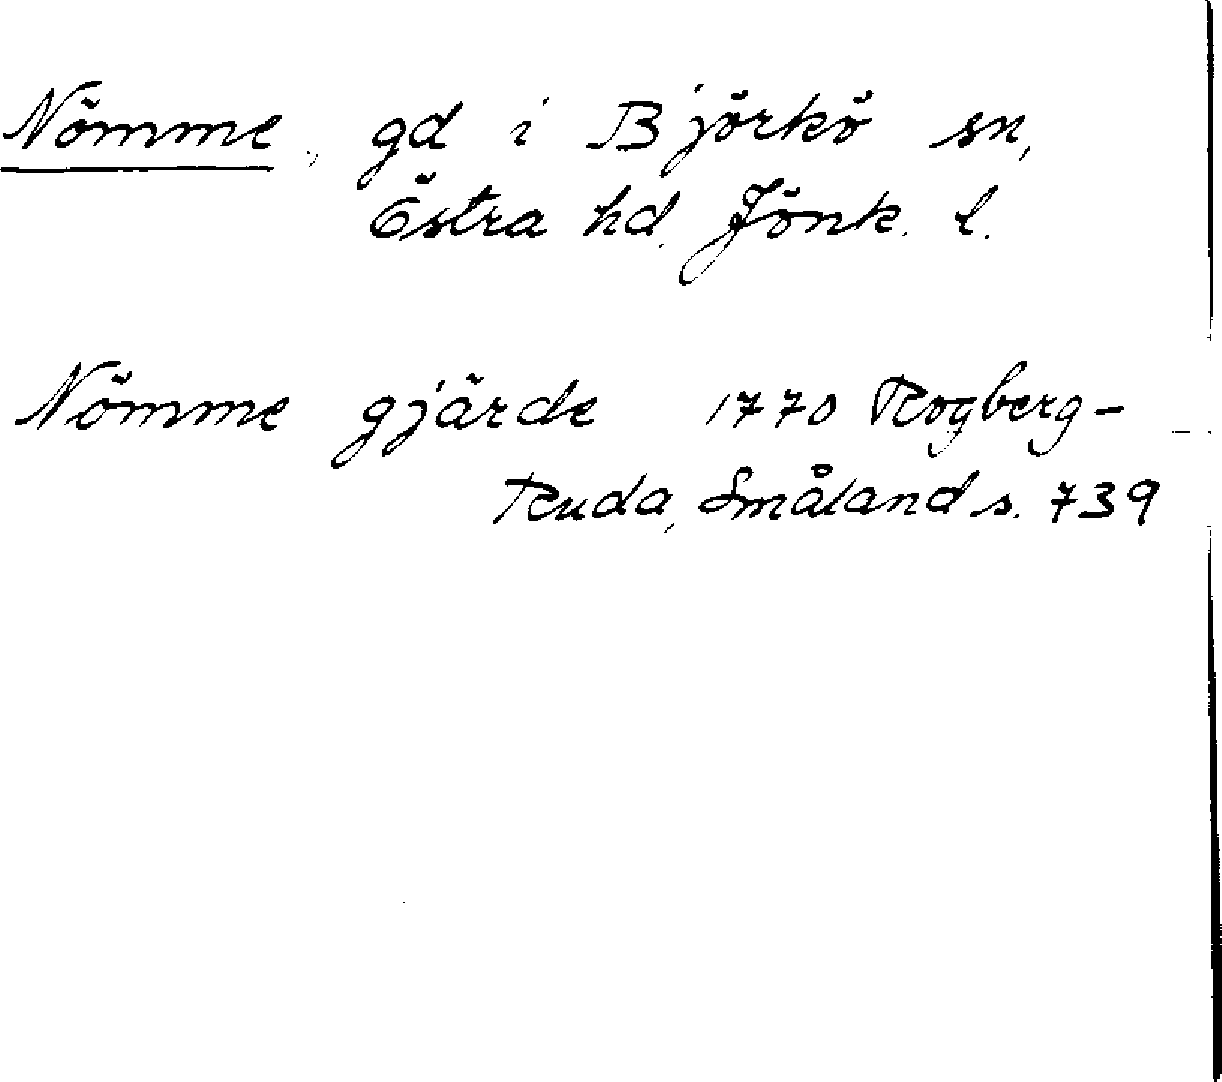 Nömme, gd i Björkö sn,
Östra hd. Jönk. l.
Nömme gjärde 1770 Rogberg-
Ruda, Småland s. 739